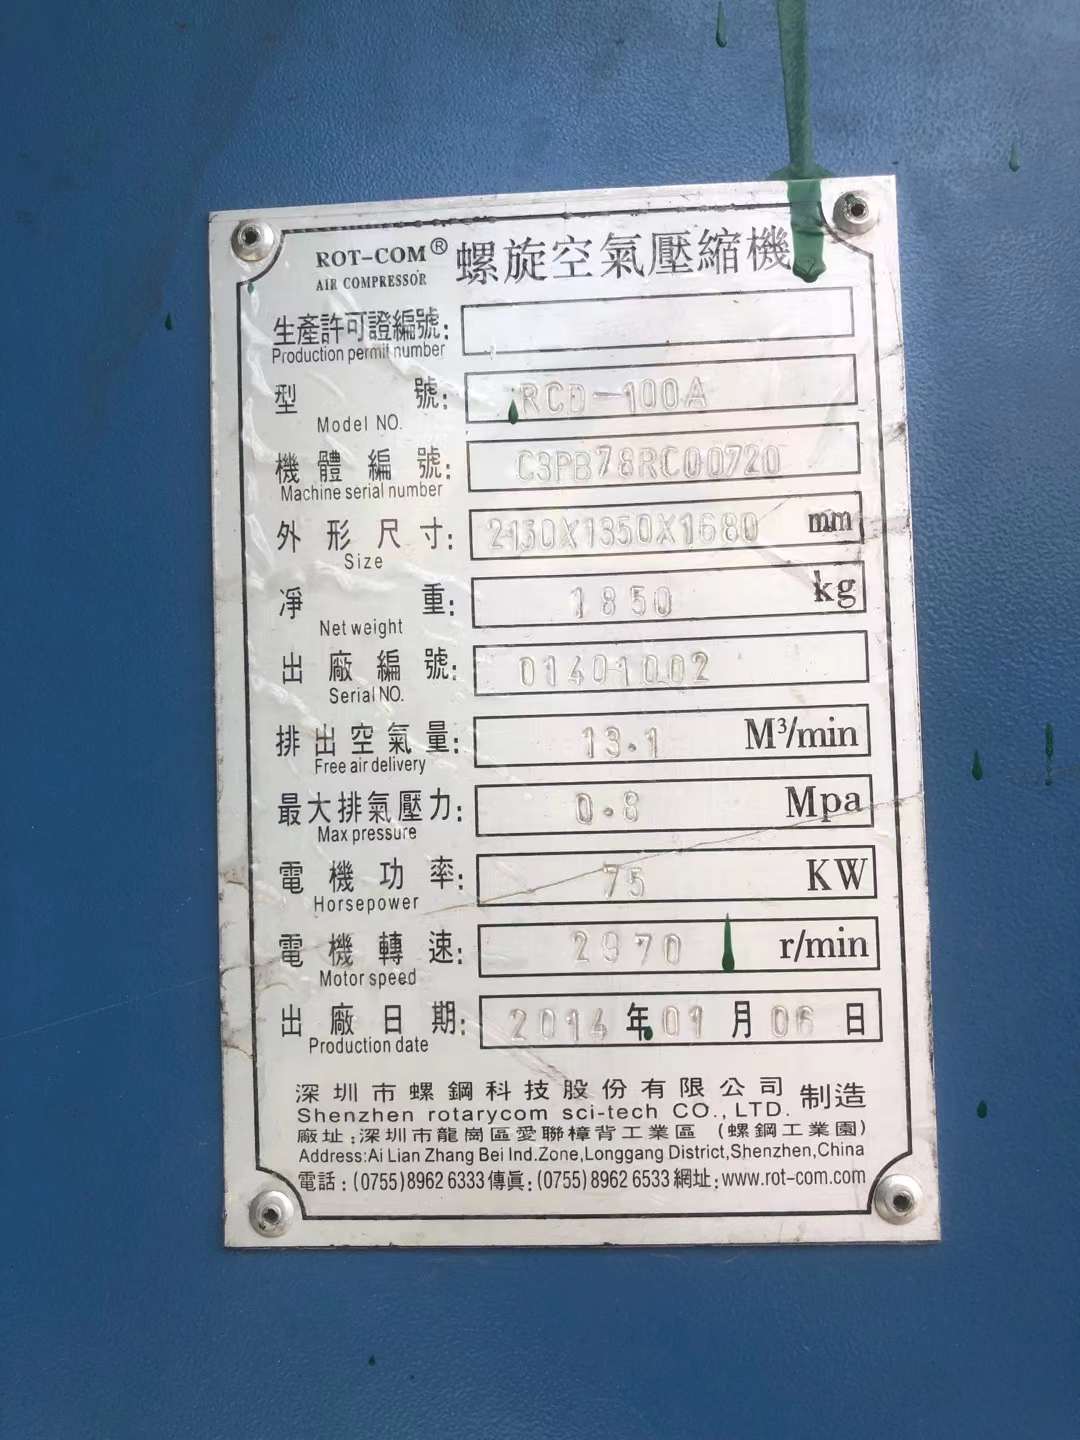 ROT-COM® 螺旋空氣壓縮機
AIR COMPRESSOR
生產許可證編號:
Production permit number
型號: RCD-100A
Model NO.
機體編號: C3PB78RC00720
Machine serial number
外形尺寸: 2130X1350X1680 mm
Size
凈重: 1850 kg
Net weight
出廠編號: 01401002
Serial NO.
排出空氣量: 13.1 M³/min
Free air delivery
最大排氣壓力: 0.8 Mpa
Max pressure
電機功率: 75 KW
Horsepower
電機轉速: 2970 r/min
Motor speed
出廠日期: 2014年01月06日
Production date
深圳市螺鋼科技股份有限公司 制造
Shenzhen rotarycom sci-tech CO.,LTD.
廠址:深圳市龍崗區愛聯樟背工業區(螺鋼工業園)
Address:Ai Lian Zhang Bei Ind.Zone,Longgang District,Shenzhen,China
電話:(0755)8962 6333傳真:(0755)8962 6533網址:www.rot-com.com